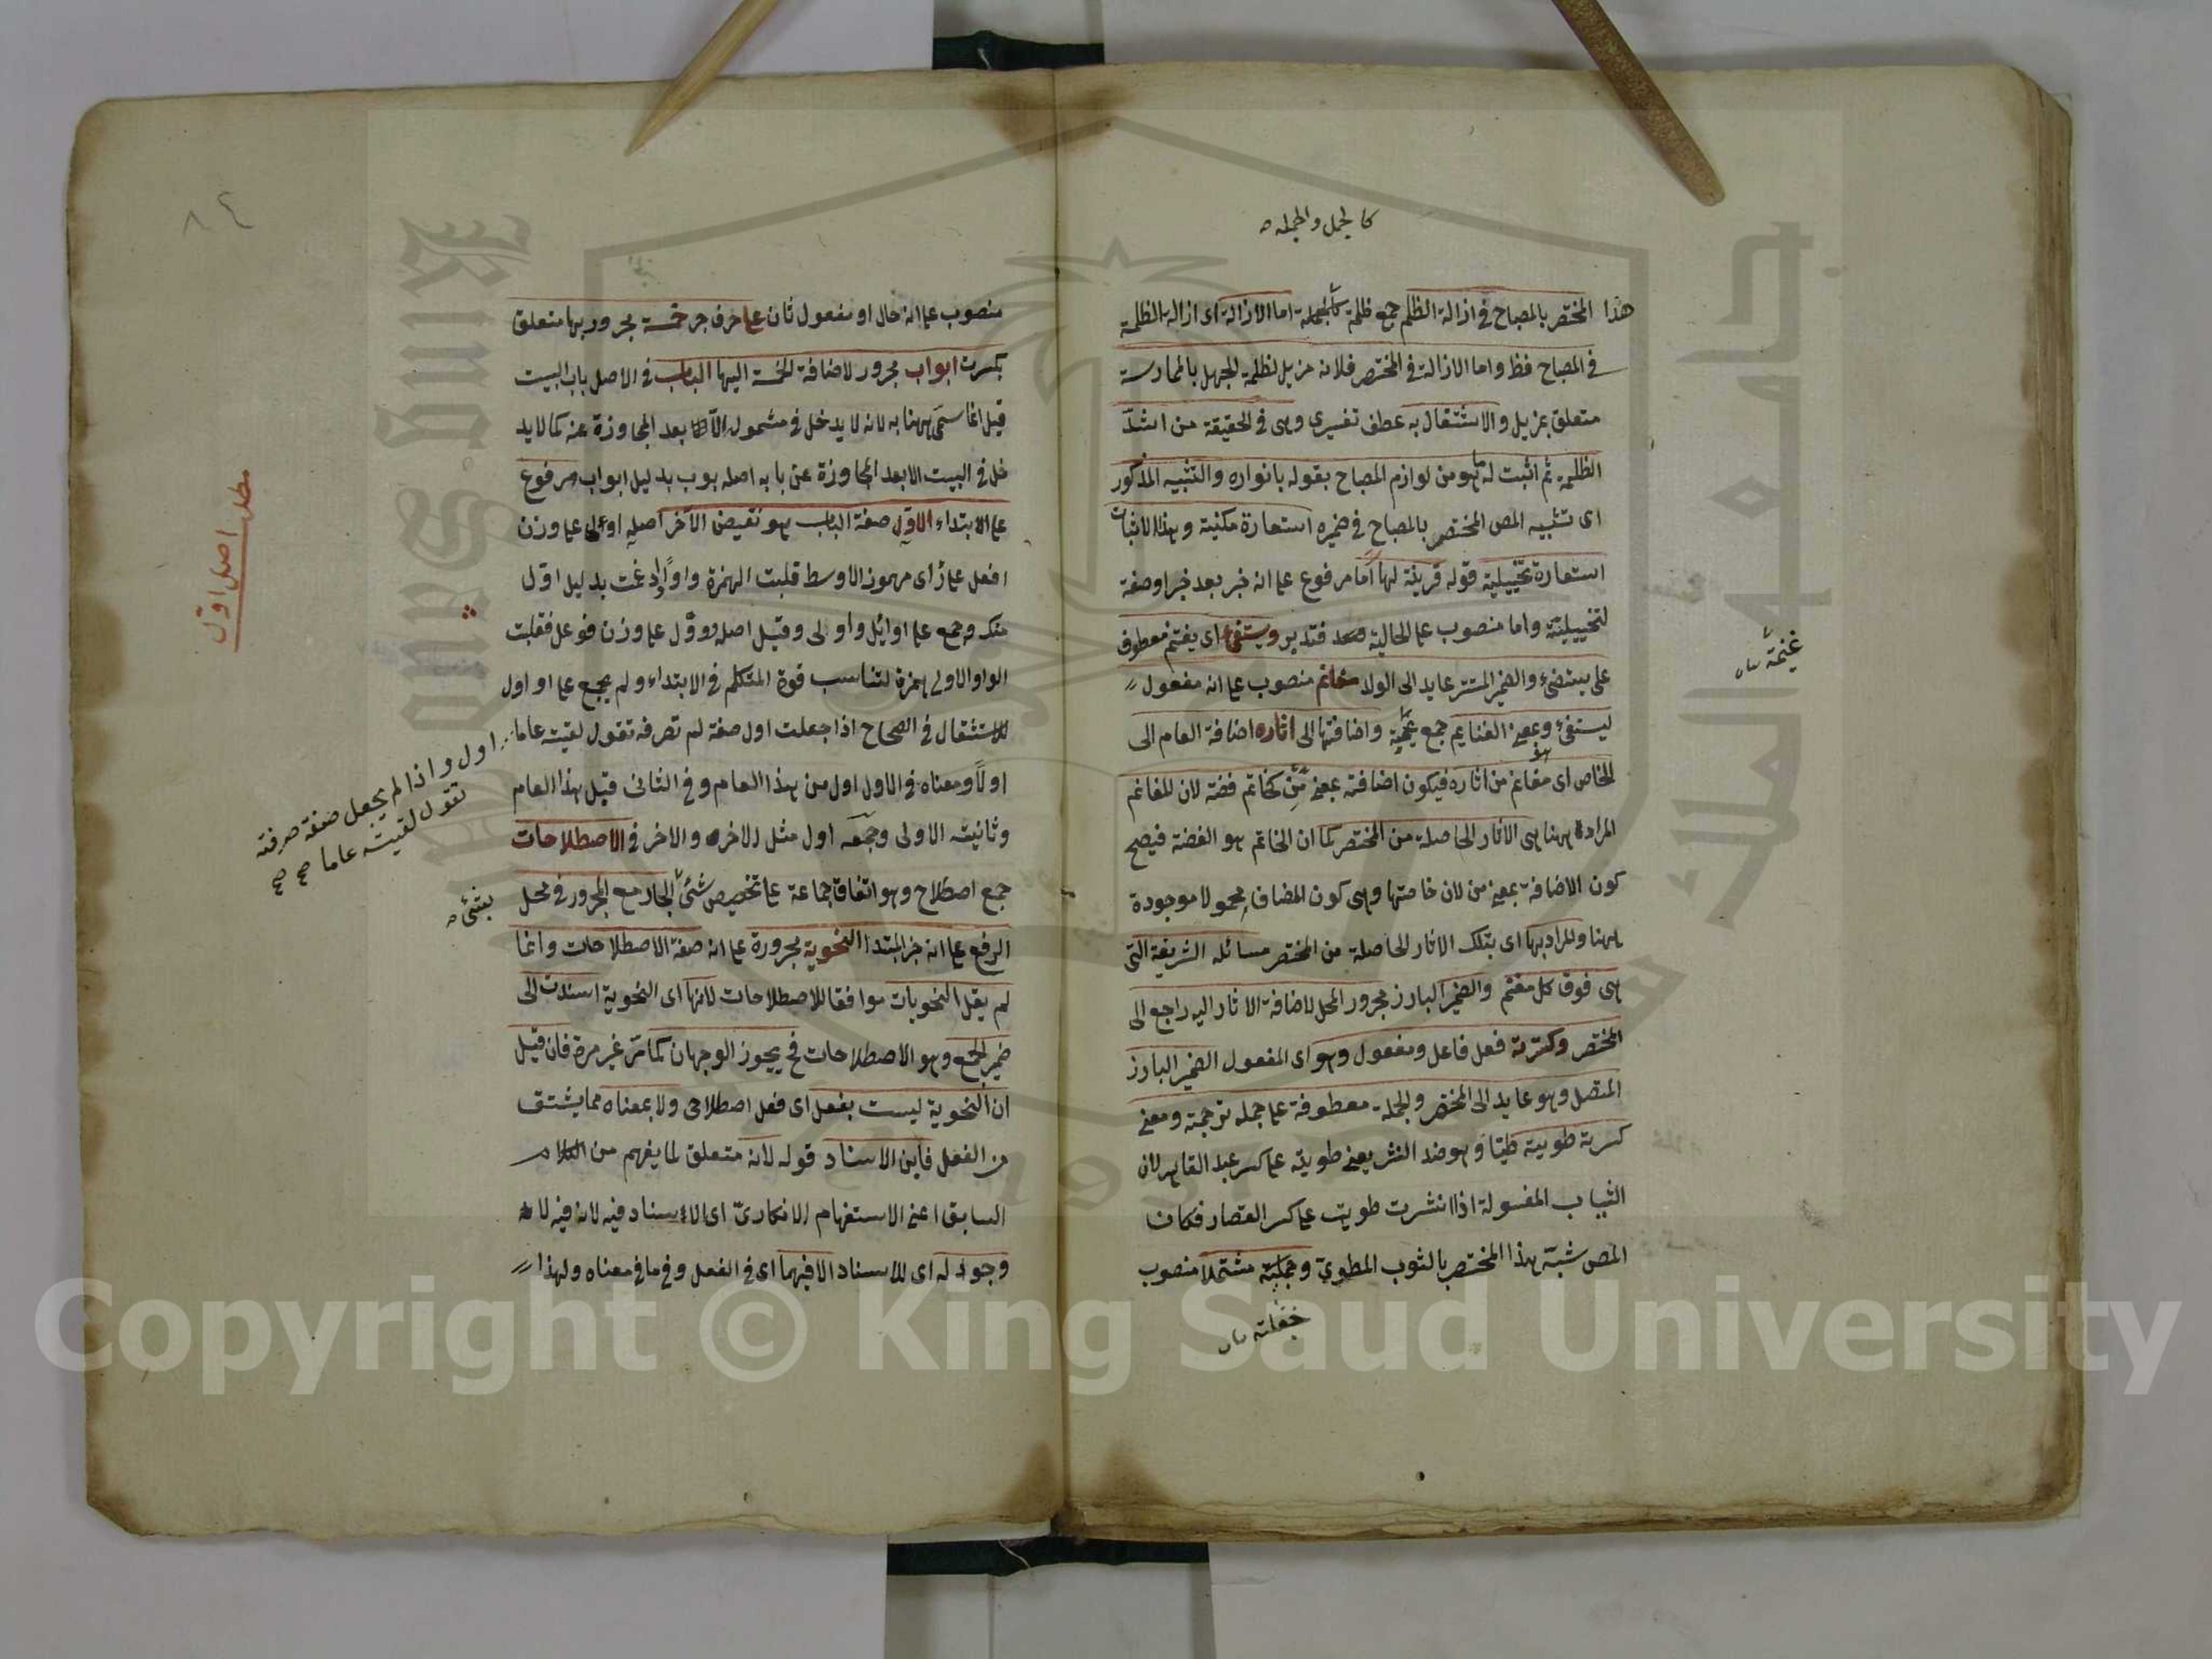 كالجمل والجملة
هذا المختصر بالمصباح في ازالة الظلم جمع ظلمة كالجملة اما الازالة اى ازالة الظلمة
في المصباح فظ واما الازالة في المختصر فلانه مزيل لظلمة الجهل بالممارسة
متعلق بمزيل والاشتغال به عطف تفسيرى وهى في الحقيقة من اشدّ
الظلمة ثم اثبت له ما هو من لوازم المصباح بقوله بانواره والتشبيه المذكور
اى تشبيه المص المختصر بالمصباح في ضميره استعارة مكنية وهذا الاثبات
استعارة تخييلية قوله قرينة لها اما مرفوع على انه خبر بعد خبر او صفة
لتخييلية واما منصوب على الحالية فتدبر ويستغنم اى يغتنم معطوف
على يستضئ والضمير المستتر عايد الى الولد مغانم منصوب على انه مفعول
ليستغنم وبمعنى الغنايم جمع غنيمة واضافتها الى اثاره اضافة العام الى
غنيمة
الخاص اى مغانم هو من اثاره فيكون اضافته بمعنى من كخاتم فضة لان المغانم
المرادة ههنا هى الاثار الحاصلة من المختصر كما ان الخاتم هو الفضة فيصح
كون الاضافة بمعنى من لان خاصتها وهى كون المضاف محمولا موجودة
ههنا والمراد بها اى بتلك الاثار الحاصلة من المختصر مسائله الشريفة التى
هى فوق كل مغنم والضمير البارز مجرور المحل لاضافة الاثار اليه راجع الى
المختصر وكسرته فعل فاعل ومفعول وهو اى المفعول الضمير البارز
المتصل وهو عايد الى المختصر والجملة معطوفة على جملة ترجمته ومعنى
كسرته طويته طيّا وهو ضد النشر يعنى طويته على كسر عبد القاهر لان
الثياب المغسولة اذا انتشرت طويت على كسر القصار فكان
المص شبّه هذا المختصر بالثوب المطوى وجعلته مشتملا منصوب
فجعلته
٨٤
منصوب على انه حال او مفعول ثان على حرف جر خمسة مجرور بها متعلق
بكسرت ابواب مجرور لاضافة الخمسة اليها الباب في الاصل باب البيت
قيل انما سمّى ههنا به لانه لا يدخل في مشموله الا بعد المجاوزة عنه كما لا يد
خل في البيت الا بعد المجاوزة عن بابه اصله بوب بدليل ابواب مرفوع
على الابتداء الاوّل صفة الباب هو نقيض الآخر اصله اوءل على وزن
مطلب اصل اوّل
افعل على رأى مهموز الاوسط قلبت الهمزة واوًا وادغمت بدليل اوّل
منك وجمع على اوائل واولى وقيل اصله ووّل على وزن فوعل فقلبت
الواو الاولى همزة لتناسب قوة المتكلم في الابتداء ولم يجمع على اواول
للاستثقال في الصحاح اذا جعلت اول صفة لم تصرفه تقول لقيته عاما
اول واذا لم يجعل صفة صرفته
تقول لقيته عاما صح صح
اولا ومعناه في الاول اول من هذا العام وفي الثانى قبل هذا العام
وثانيته الاولى وجمعه اول مثل الاخره والاخر في الاصطلاحات
جمع اصطلاح وهو اتفاق جماعة على تخصيص شئ الجار مع المجرور في محل
بشئ
الرفع على انه خبر المبتدا النحوية مجرورة على انه صفة الاصطلاحات وانما
لم يقل النحويات موافقا للاصطلاحات لانها اى النحوية اسندت الى
ضمير الجمع وهو الاصطلاحات فح يجوز الوجهان كما مرّ غير مرة فان قيل
ان النحوية ليست بفعل اى فعل اصطلاحى ولا بمعناه مما يشتق
من الفعل فاين الاسناد قوله لانه متعلق لما يفهم من الكلام
السابق اعنى الاستفهام الانكارىّ اى لا اسناد فيه لانه فيه لانه
وجود له اى للاسناد الا فيهما اى في الفعل وفي ما في معناه ولهذا
Copyright © King Saud University